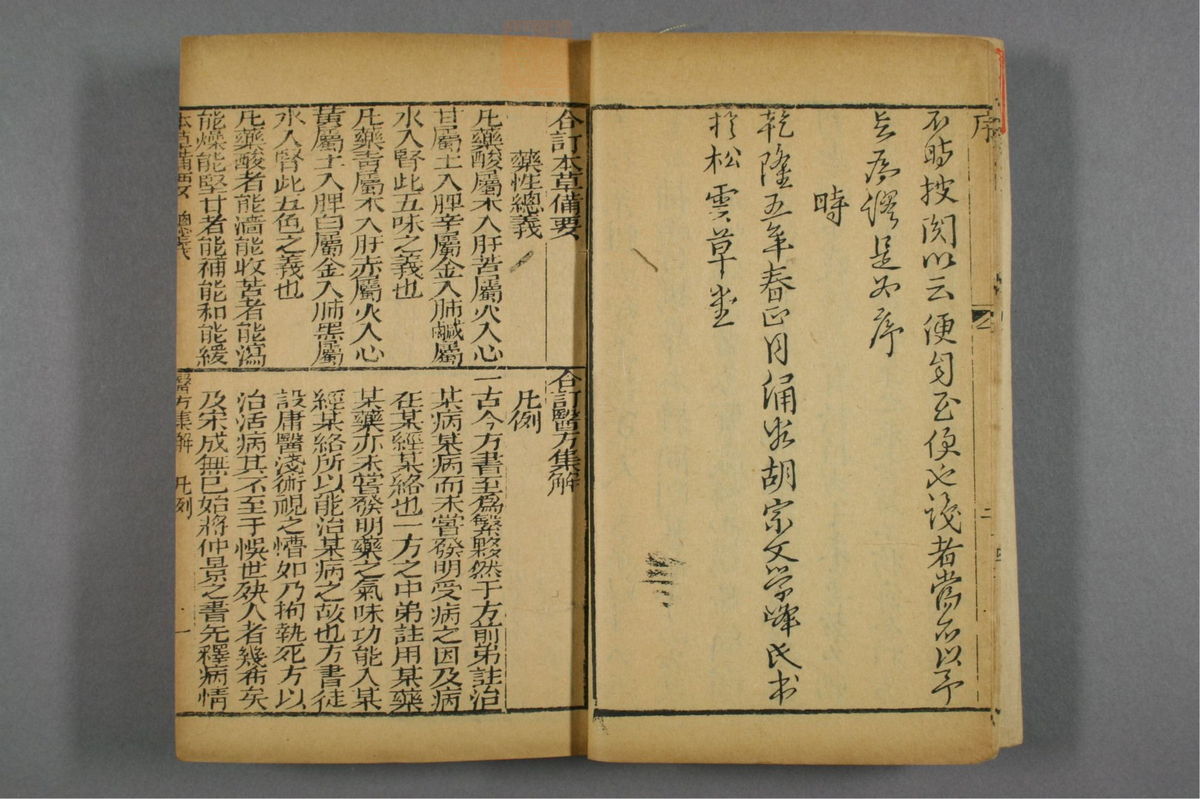 序
不時披閱以云便自至便也識者當不以予
言為謬是為序
時
乾隆五年春正月浦安胡宗文學峰氏书
於松雲草堂
二
合訂本草備要
藥性總義
凡藥酸屬木入肝苦屬火入心
甘屬土入脾辛屬金入肺鹹屬
水入腎此五味之義也
凡藥青屬木入肝赤屬火入心
黃屬土入脾白屬金入肺黑屬
水入腎此五色之義也
凡藥酸者能濇能收苦者能瀉
能燥能堅甘者能補能和能緩
本草備要 總義
合訂醫方集解
凡例
一古今方書至爲繁夥然于方前弟註治
某病某病而未嘗發明受病之因及病
在某經某絡也一方之中弟註用某藥
某藥亦未嘗發明藥之氣味功能入某
經某絡所以能治某病之故也方書徒
設庸醫淺術視之懵如乃拘執死方以
治活病其不至于悞世殃人者幾希矣
及宋成無已始將仲景之書先釋病情
醫方集解 凡例 一